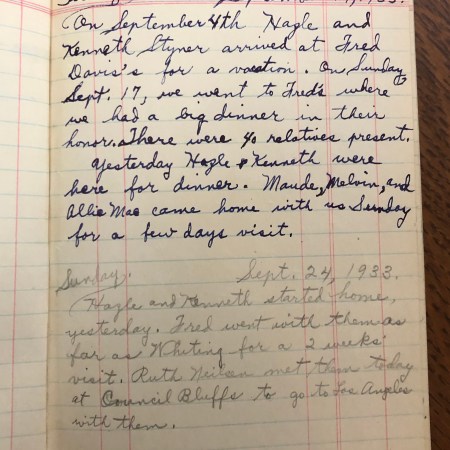 1933.
On September 4th Hazle and
Kenneth Styner arrived at Fred
Davis's for a vacation. On Sunday
Sept. 17, we went to Fred's where
we had a big dinner in their
honor. There were 40 relatives present.
Yesterday Hazle & Kenneth were
here for dinner. Maude, Melvin, and
Allie Mae came home with us Sunday
for a few days visit.
Sunday. Sept. 24, 1933.
Hazle and Kenneth started home,
yesterday. Fred went with them as
far as Whiting for a 2 weeks'
visit. Ruth met them today
at Council Bluffs to go to Los Angeles
with them.